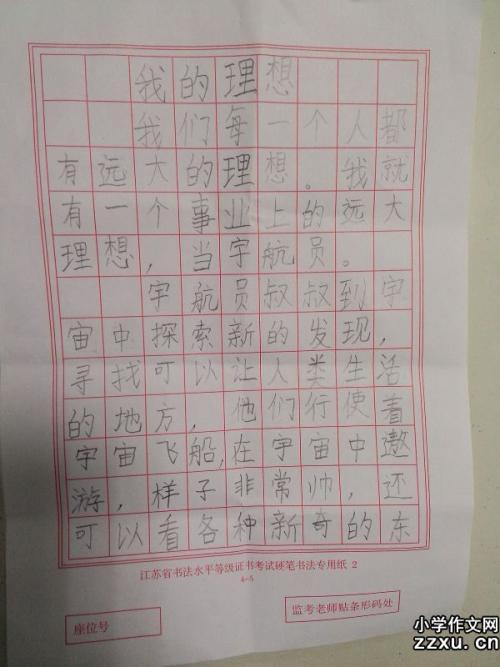 我的理想
我们每一个人都
有远大的理想。我就
有一个事业上的远大
理想，当宇航员。
宇航员叔叔到宇
宙中探索新的发现，
寻找可以让人类生活
的地方，他们行使着
宇宙飞船，在宇宙中遨
游，样子非常帅，还
可以看各种新奇的东
江苏省书法水平等级证书考试硬笔书法专用纸 2
4-5
座位号
监考老师贴条形码处
小学作文网
zzxu.cn